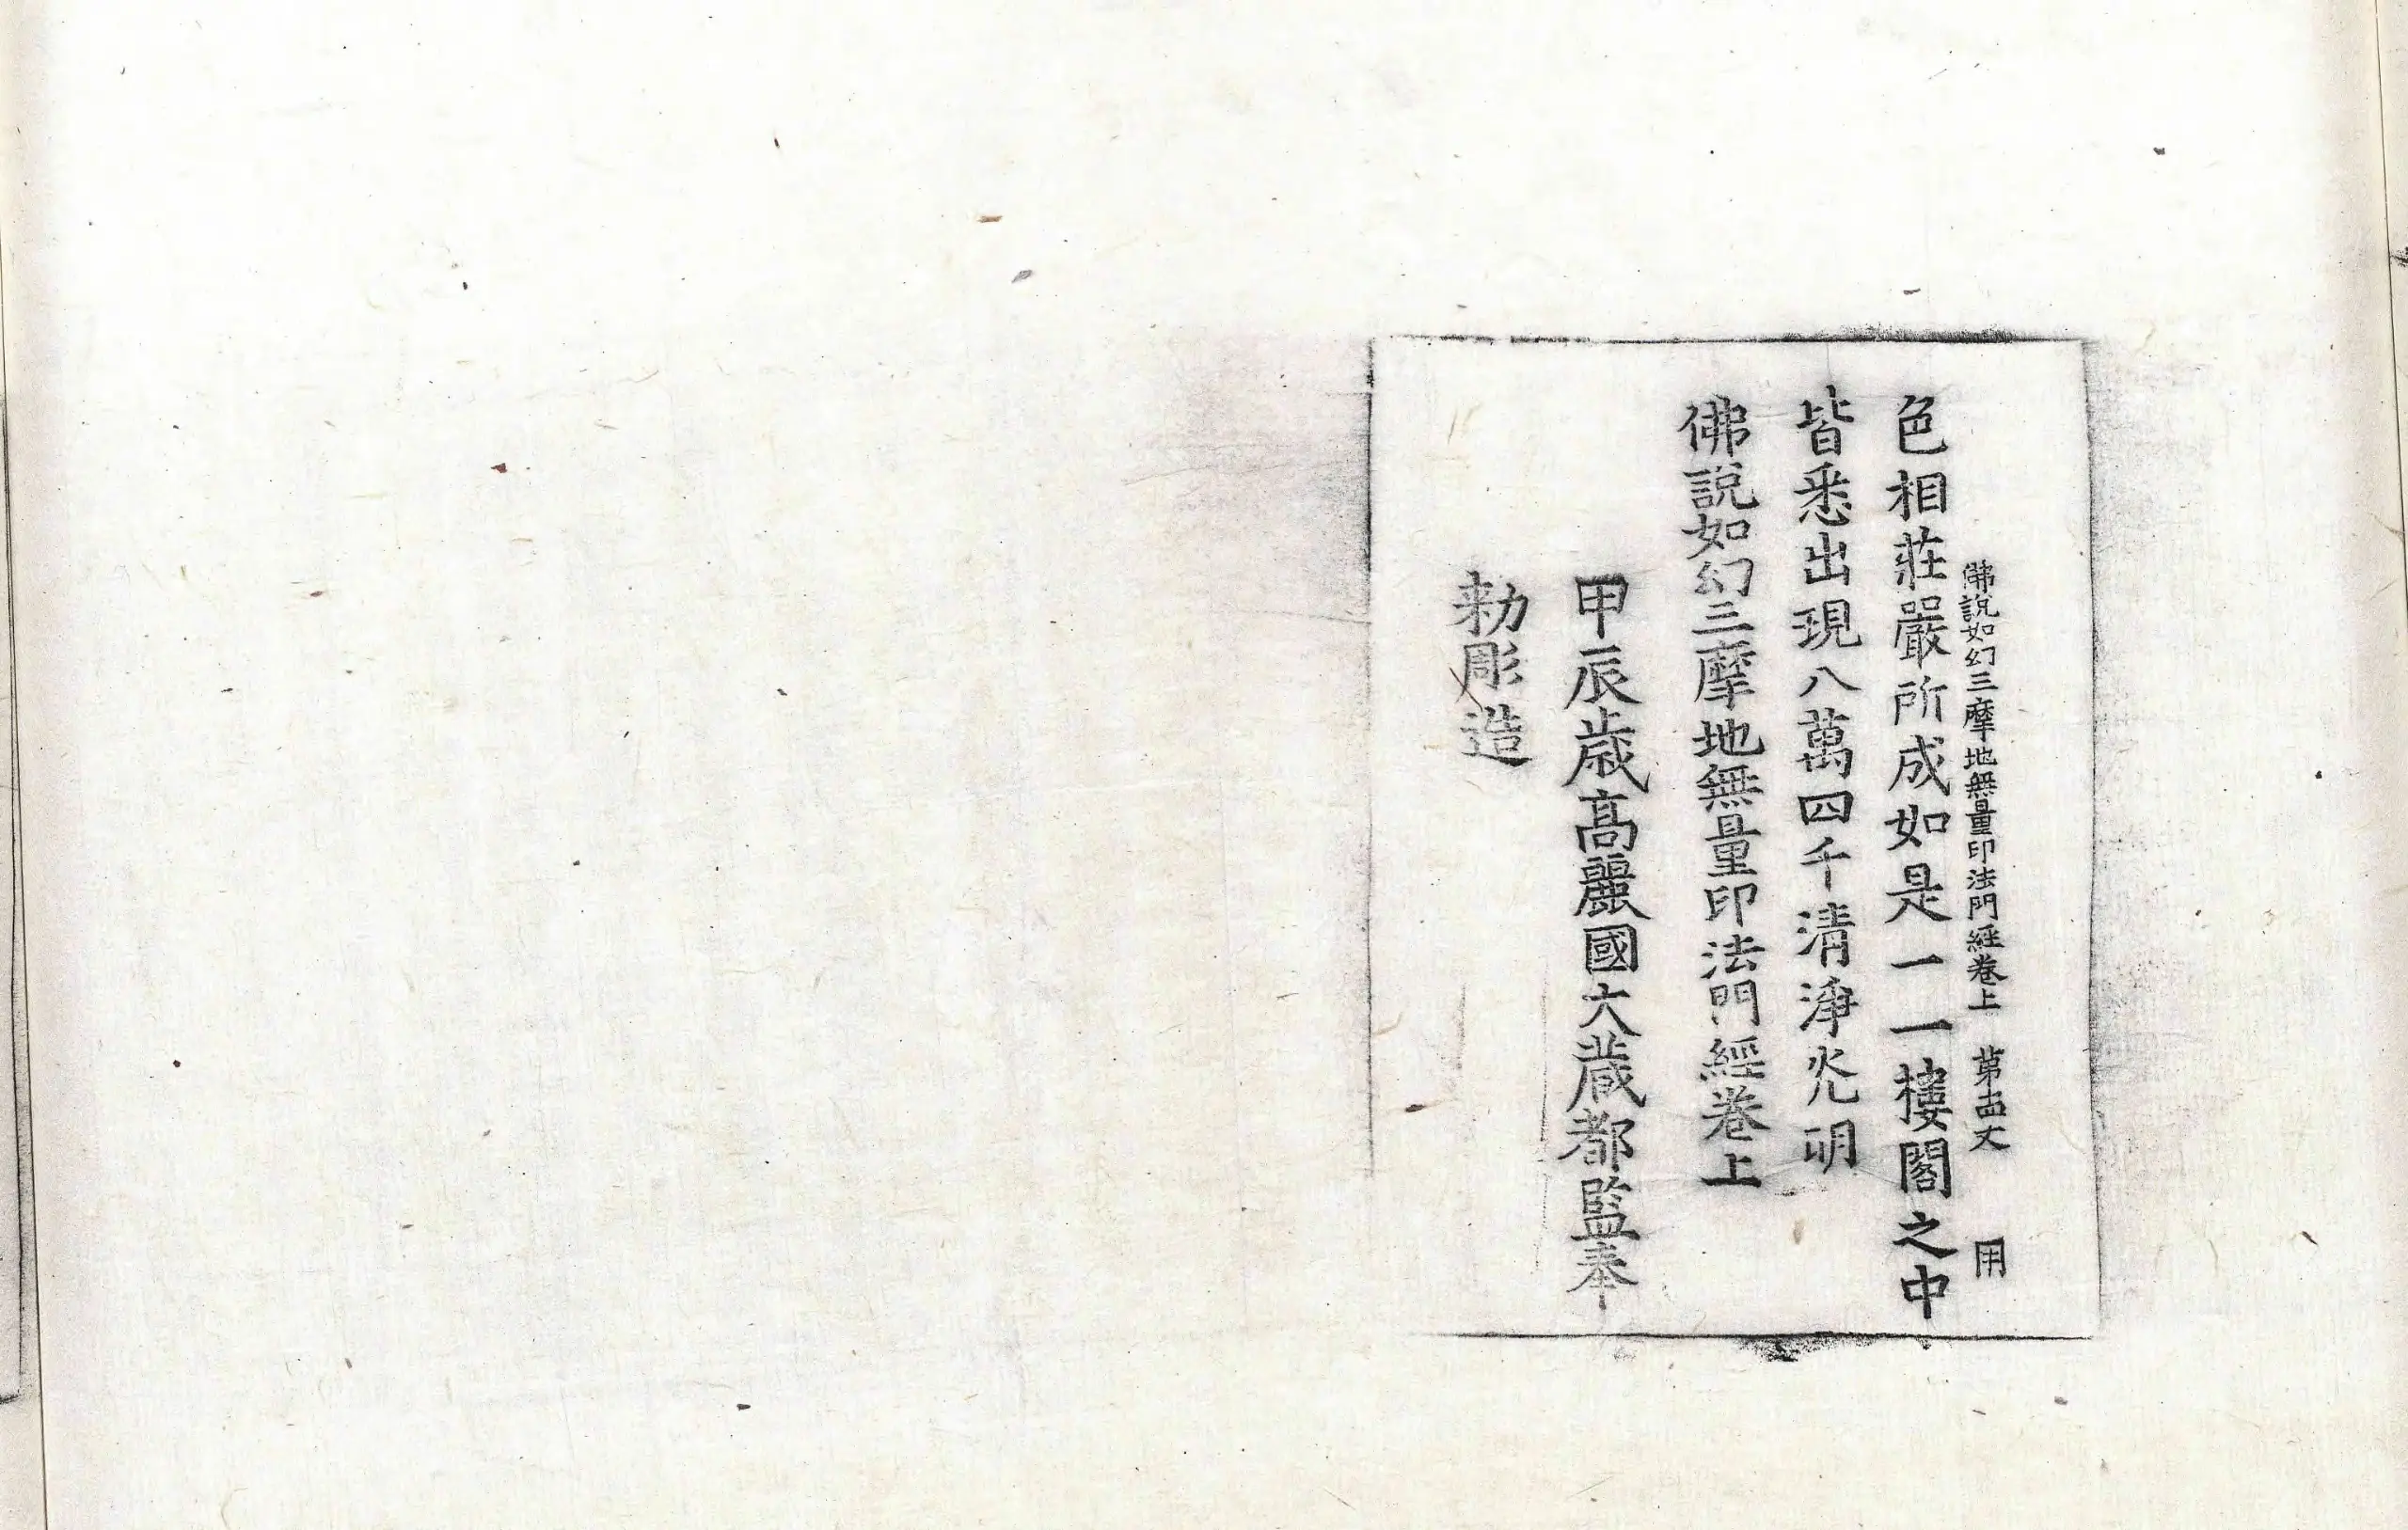 佛說如幻三摩地無量印法門經卷上 第十四丈 用
色相莊嚴所成如是一一樓閣之中
皆悉出現八萬四千清淨光明
佛說如幻三摩地無量印法門經卷上
甲辰歲高麗國大藏都監奉
勑彫造